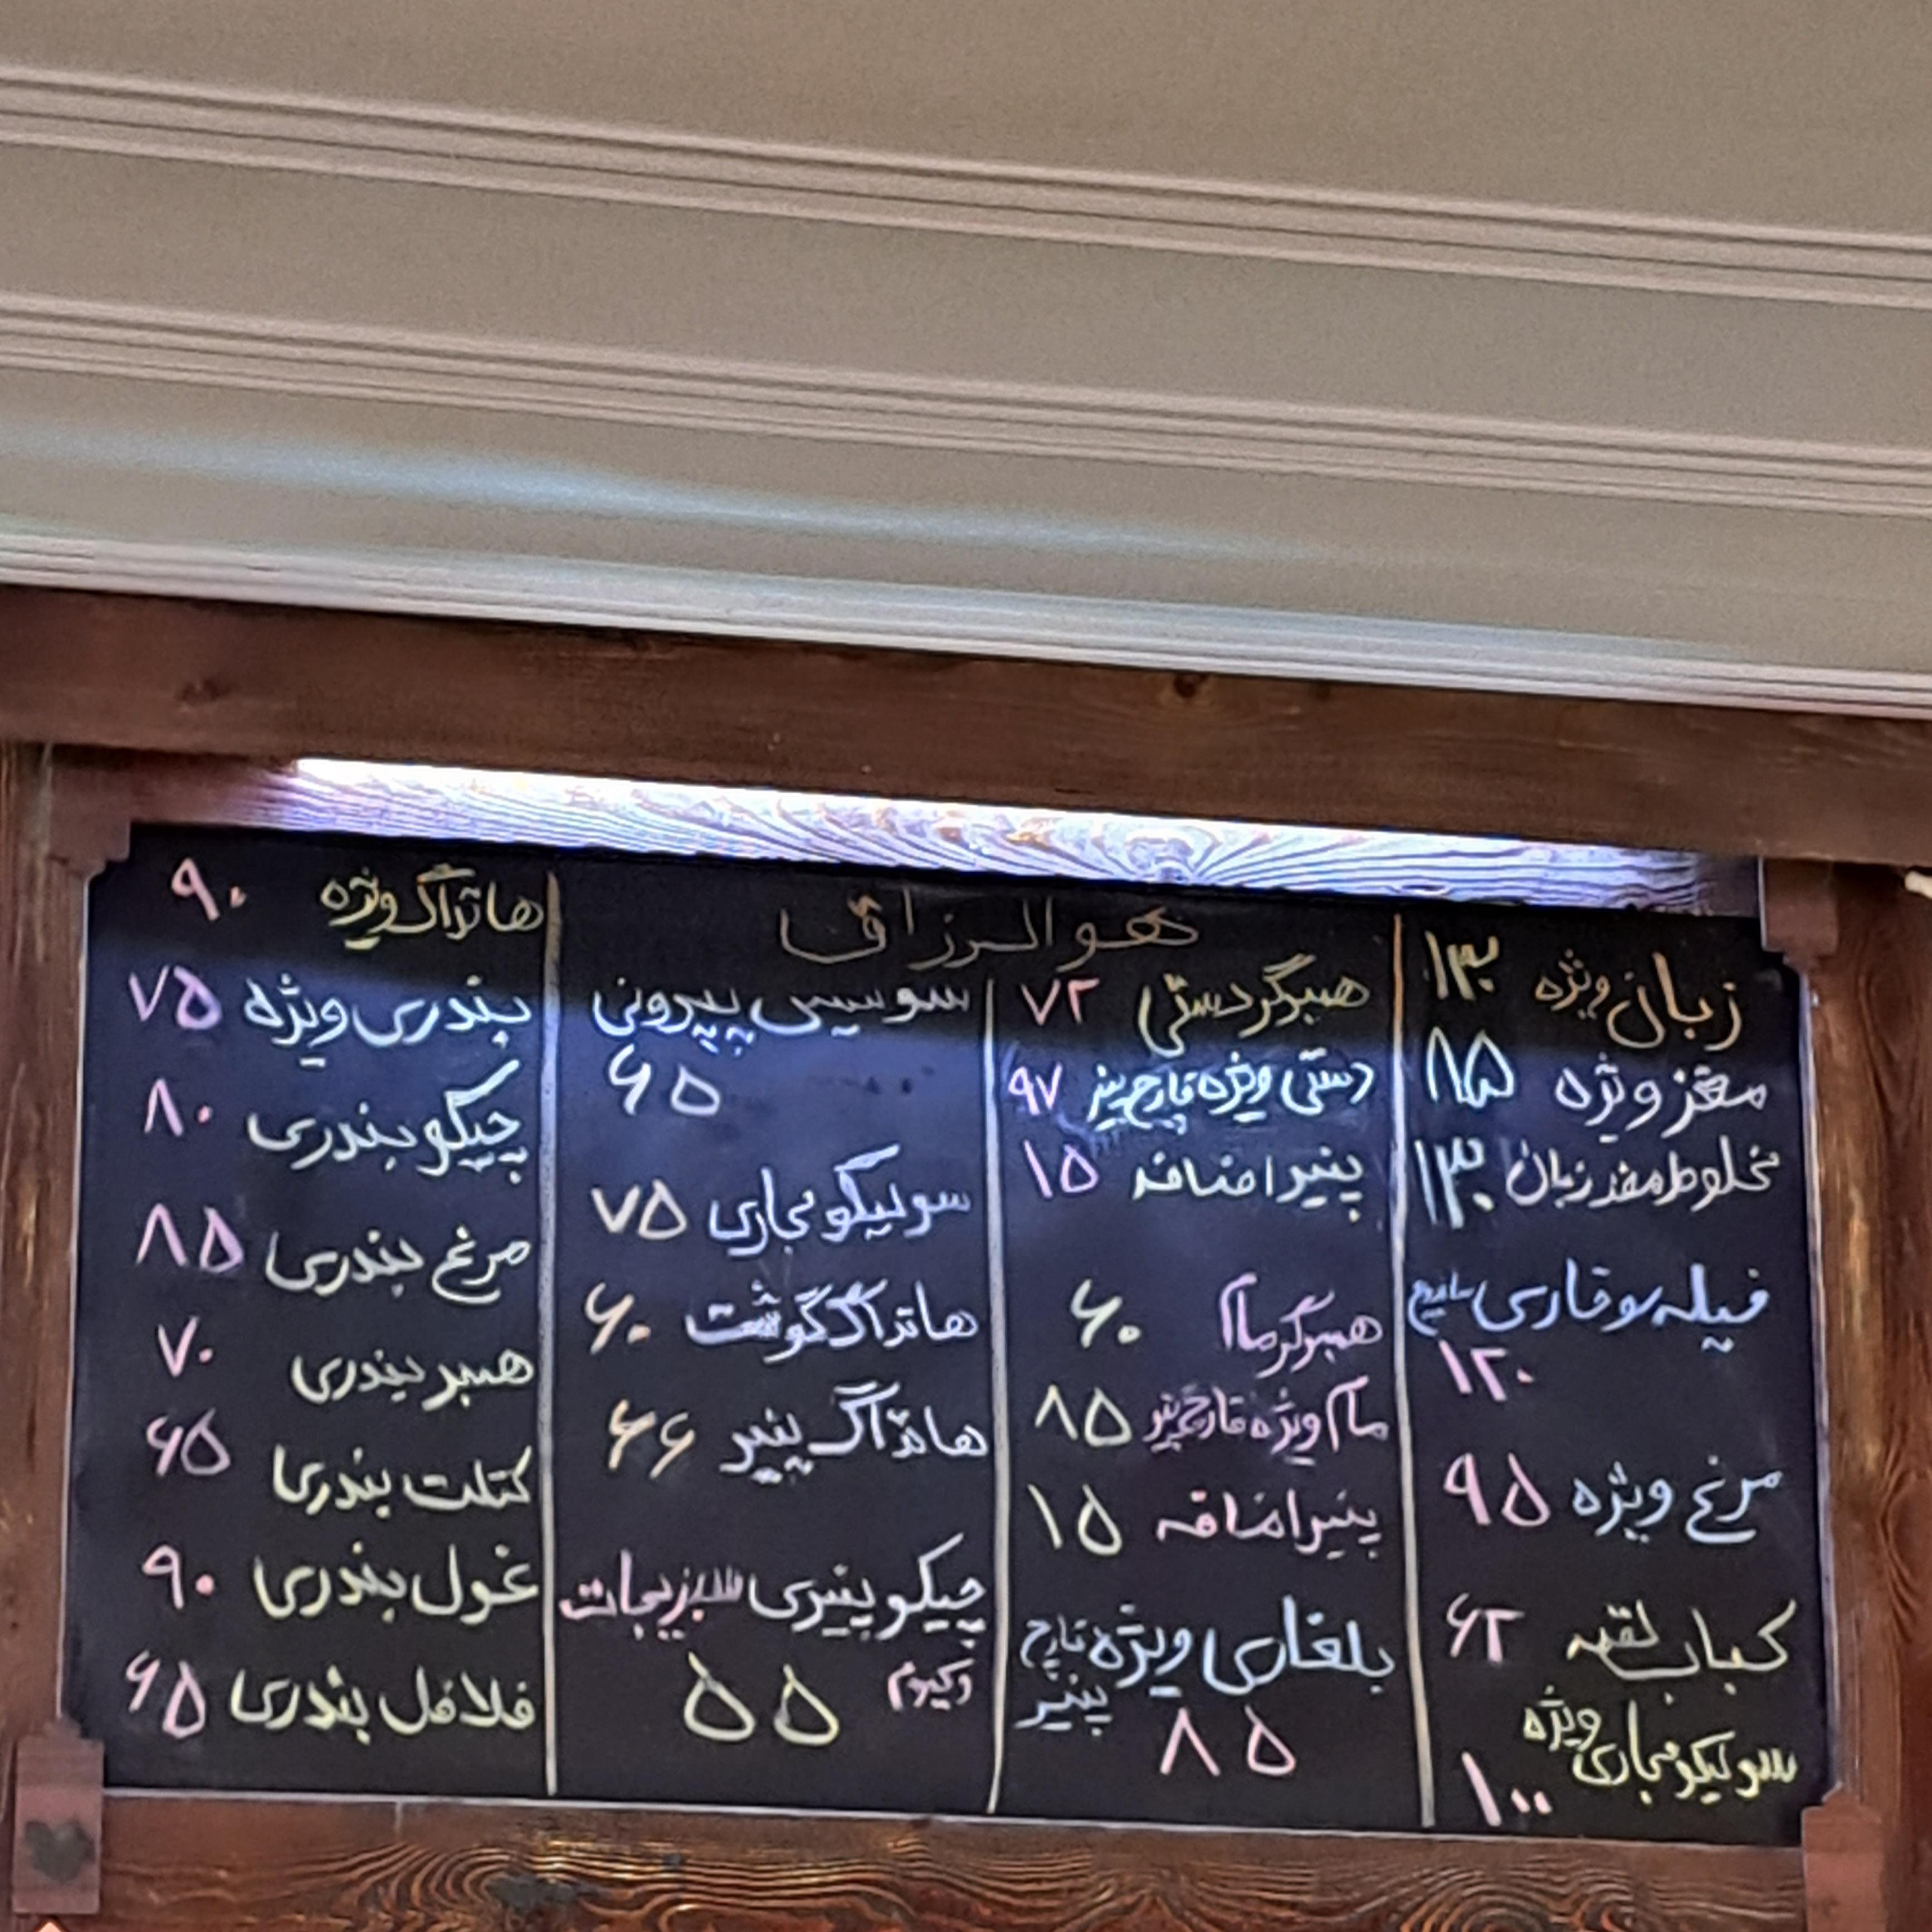 هوالرزاق
زبان ویژه ۱۳۰
مغز ویژه ۸۵
مخلوط مغز زبان ۱۳۰
فیله سوخاری
۱۲۰
مرغ ویژه ۹۵
کباب لقمه ۶۲
سوسیکو مجاری ویژه
۱۰۰
همبرگر دستی ۷۲
دستی ویژه قارچ پنیر ۹۷
پنیر اضافه ۱۵
همبرگر مام ۶۰
مام ویژه قارچ پنیر ۸۵
پنیر اضافه ۱۵
بلغاری ویژه قارچ
پنیر
۸۵
سوسیس پپرونی
۶۵
سوسیکو مجاری ۷۵
هاتداگ گوشت ۶۰
هاتداگ پنیر ۶۶
چیکو پنیری سبزیجات
وکیوم ۵۵
هاتداگ ویژه ۹۰
بندری ویژه ۷۵
چیکو بندری ۸۰
مرغ بندری ۸۵
همبر بندری ۷۰
کتلت بندری ۶۵
غول بندری ۹۰
فلافل بندری ۶۵